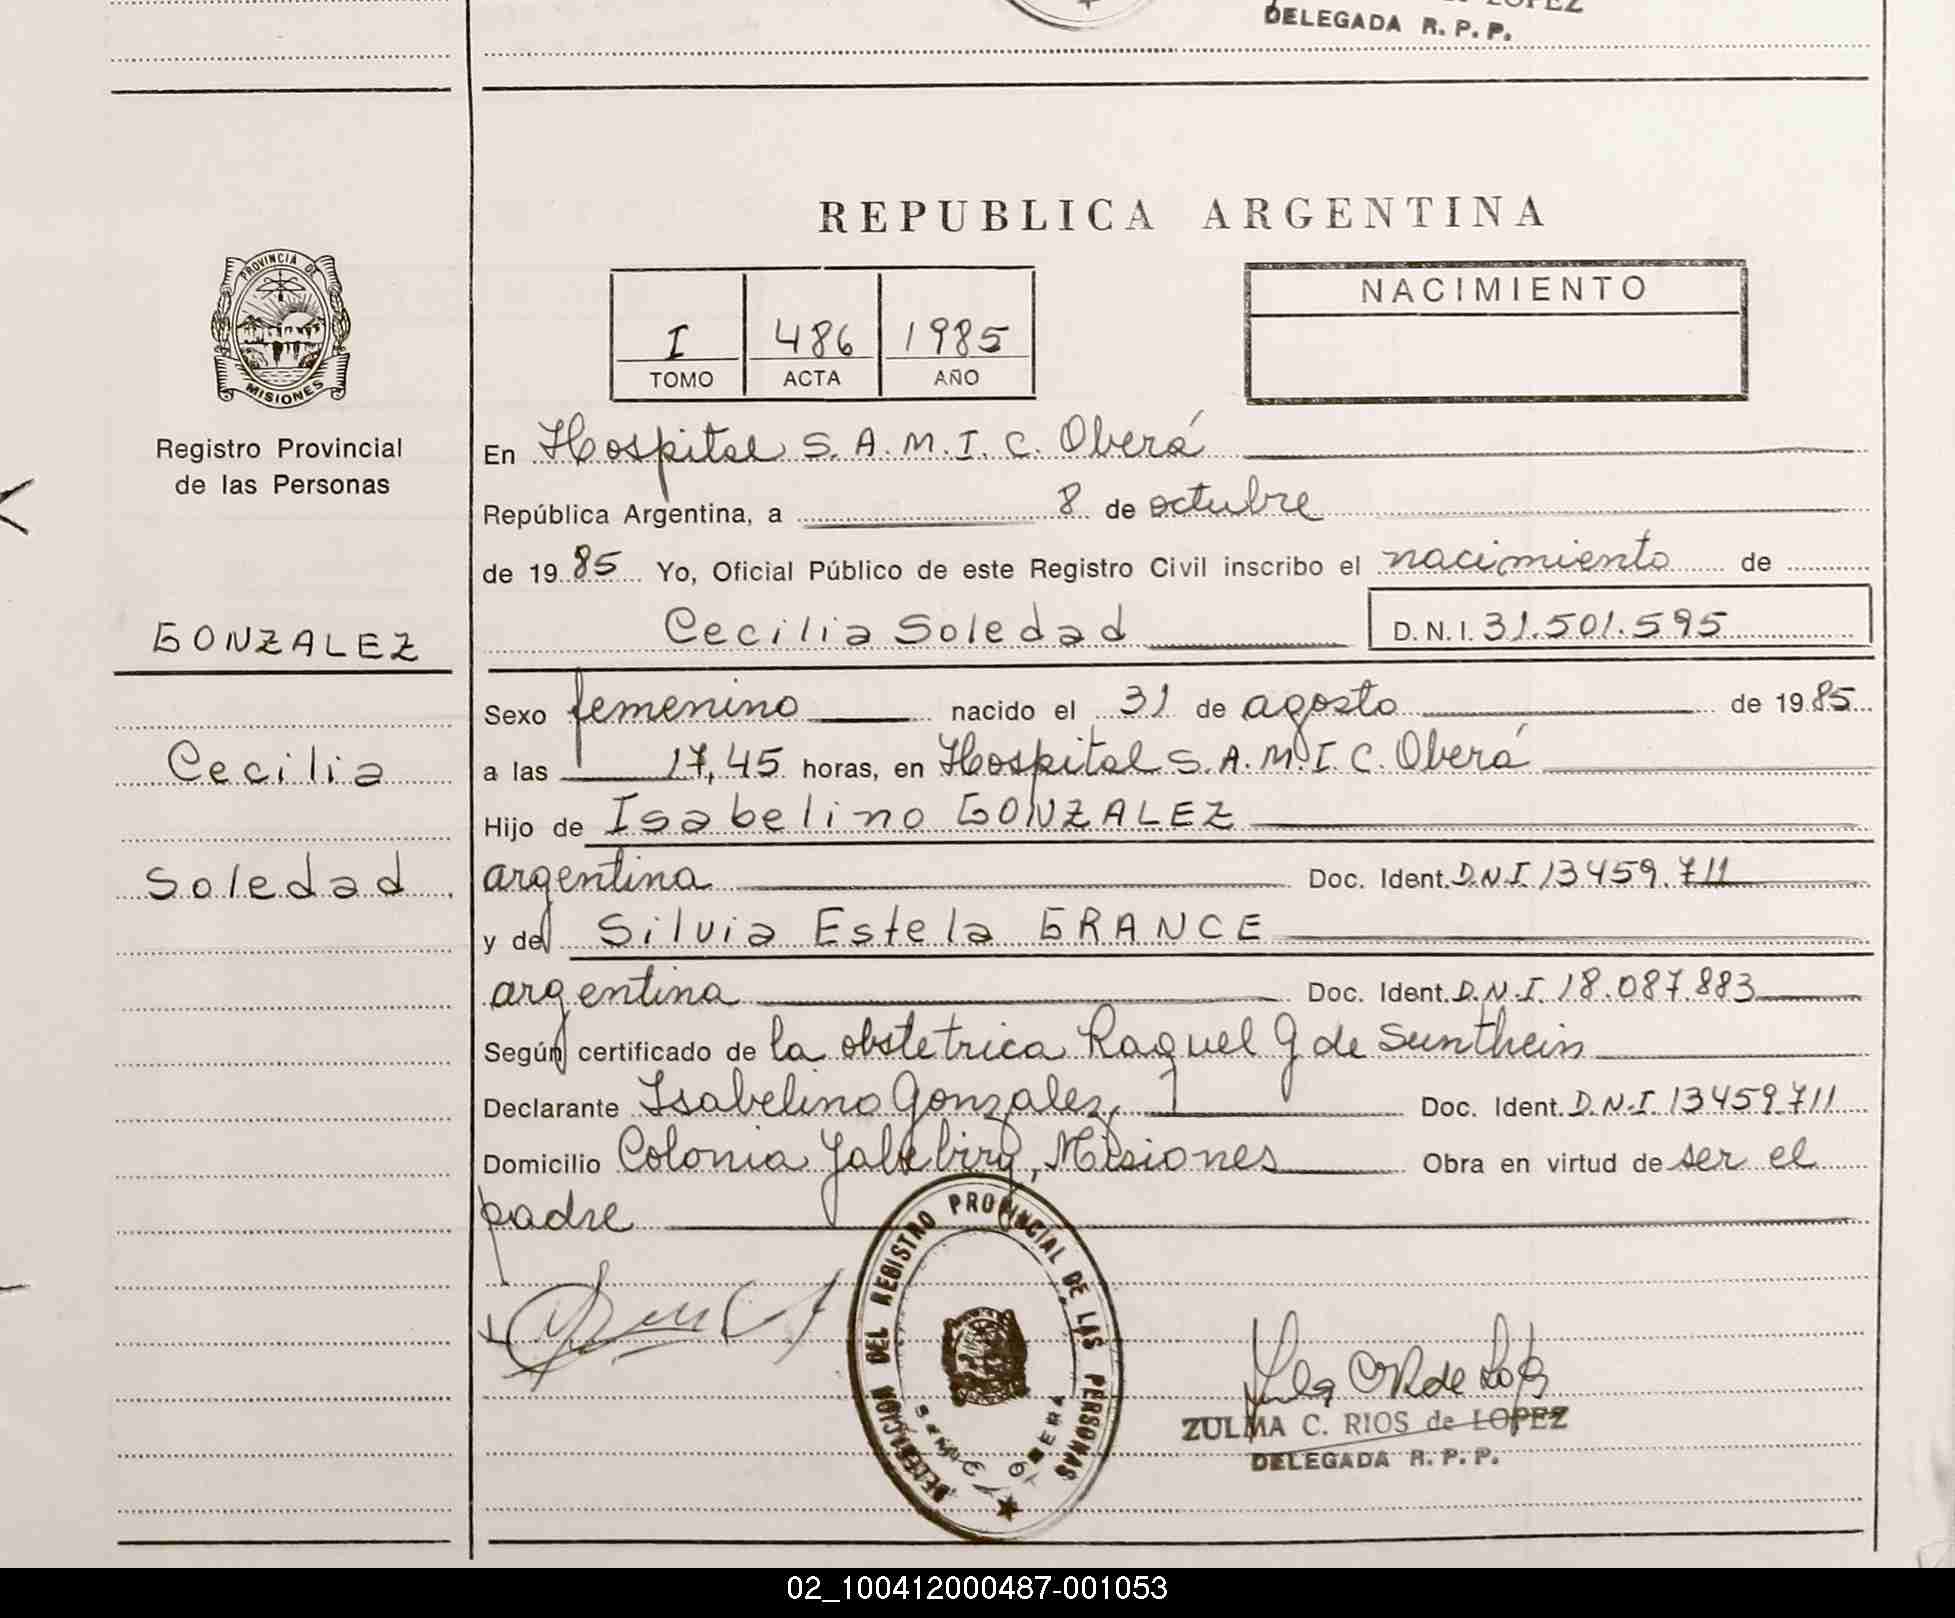 LOPEZ
DELEGADA R. P. P.
REPUBLICA ARGENTINA
PROVINCIA DE
MISIONES
Registro Provincial
de las Personas
I 486 1985
TOMO ACTA AÑO
NACIMIENTO
En Hospital S.A.M.I.C. Oberá
República Argentina, a 8 de octubre
de 1985 Yo, Oficial Público de este Registro Civil inscribo el nacimiento de
GONZALEZ
Cecilia Soledad D.N.I. 31.501.595
Sexo femenino nacido el 31 de agosto de 1985
Cecilia
a las 17,45 horas, en Hospital S.A.M.I.C. Oberá
Hijo de Isabelino GONZALEZ
Soledad
argentina Doc. Ident. D.N.I 13459.711
y de Silvia Estela GRANCE
argentina Doc. Ident. D.N.I. 18.087.883
Según certificado de la obstetrica Raquel G de Sunthein
Declarante Isabelino Gonzalez, Doc. Ident. D.N.I. 13459711
Domicilio Colonia Yabebiry, Misiones Obra en virtud de ser el
padre
DELEGACION DEL REGISTRO PROVINCIAL DE LAS PERSONAS
ZULMA C. RIOS de LOPEZ
DELEGADA R. P. P.
02_100412000487-001053